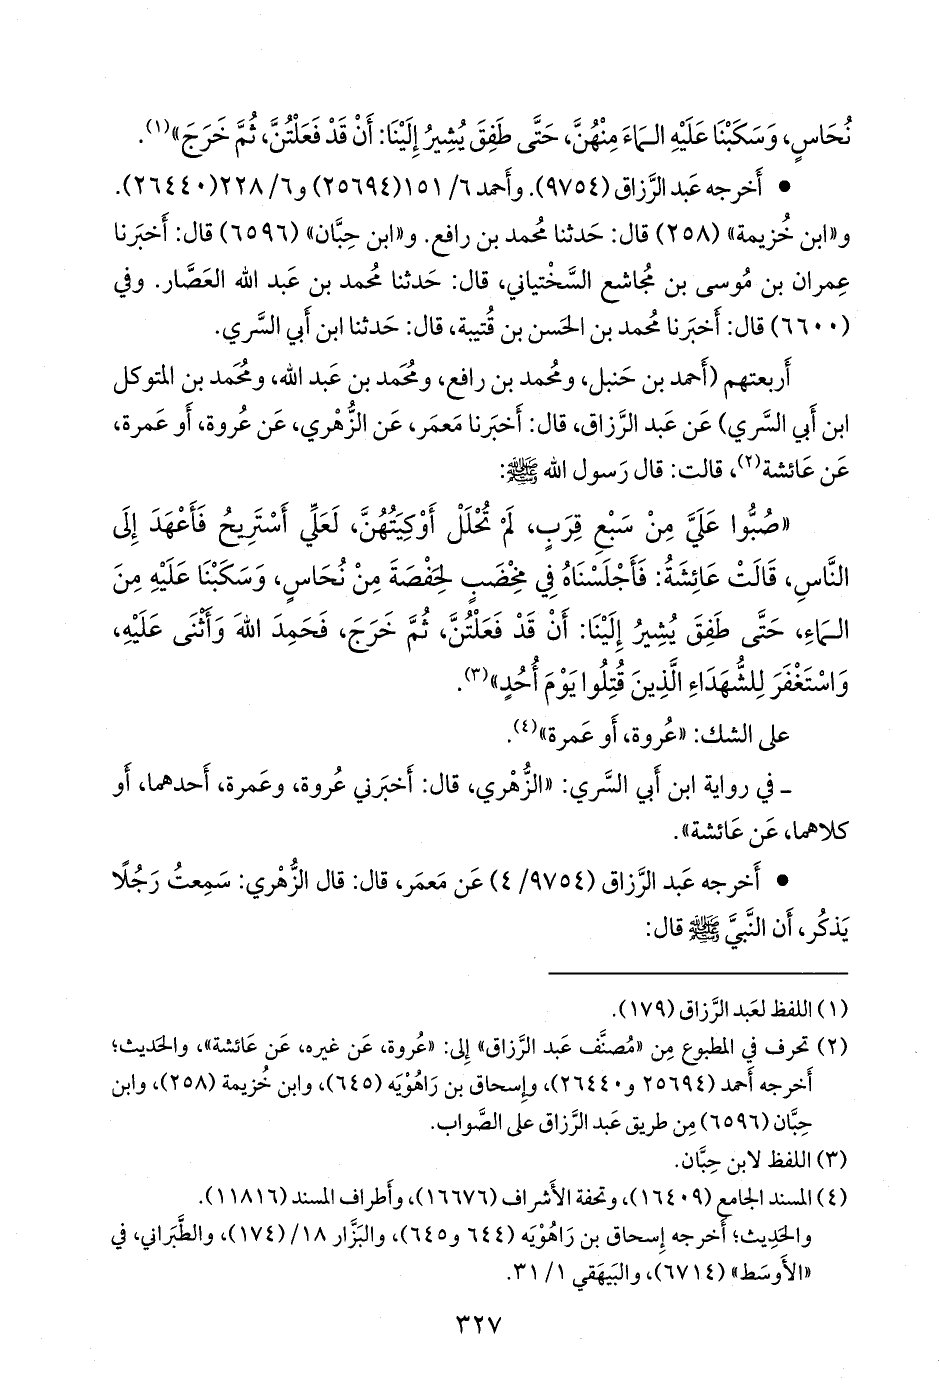 نُحَاسٍ، وَسَكَبْنَا عَلَيْهِ الـمَاءَ مِنْهُنَّ، حَتَّى طَفِقَ يُشِيرُ إِلَيْنَا: أَنْ قَدْ فَعَلْتُنَّ، ثُمَّ خَرَجَ»(١).
• أَخرجه عَبد الرَّزاق (٩٧٥٤). وأَحمد ٦/ ١٥١(٢٥٦٩٤) و٦/ ٢٢٨(٢٦٤٤٠).
و«ابن خُزيمة» (٢٥٨) قال: حَدثنا مُحمد بن رافع. و«ابن حِبَّان» (٦٥٩٦) قال: أَخبَرنا
عِمران بن مُوسى بن مُجاشع السَّختياني، قال: حَدثنا مُحمد بن عَبد الله العَصَّار. وفي
(٦٦٠٠) قال: أَخبَرنا مُحمد بن الحَسن بن قُتيبة، قال: حَدثنا ابن أَبي السَّري.
أَربعتهم (أَحمد بن حَنبل، ومُحمد بن رافع، ومُحَمد بن عَبد الله، ومُحَمد بن المتوكل
ابن أَبي السَّري) عَن عَبد الرَّزاق، قال: أَخبَرنا مَعمَر، عَن الزُّهْري، عَن عُروة، أَو عَمرة،
عَن عَائشة(٢)، قالت: قال رَسول الله ﷺ:
«صُبُّوا عَلَيَّ مِنْ سَبْعِ قِرَبٍ، لَمْ تُحْلَلْ أَوْكِيَتُهُنَّ، لَعَلِّي أَسْتَرِيحُ فَأَعْهَدَ إِلَى
النَّاسِ، قَالَتْ عَائِشَةُ: فَأَجْلَسْنَاهُ فِي مِخْضَبٍ لِحَفْصَةَ مِنْ نُحَاسٍ، وَسَكَبْنَا عَلَيْهِ مِنَ
الـمَاءِ، حَتَّى طَفِقَ يُشِيرُ إِلَيْنَا: أَنْ قَدْ فَعَلْتُنَّ، ثُمَّ خَرَجَ، فَحَمِدَ اللهَ وَأَثْنَى عَلَيْهِ،
وَاسْتَغْفَرَ لِلشُّهَدَاءِ الَّذِينَ قُتِلُوا يَوْمَ أُحُدٍ»(٣).
على الشك: «عُروة، أَو عَمرة»(٤).
ـ في رواية ابن أَبي السَّري: «الزُّهْري، قال: أَخبَرني عُروة، وعَمرة، أَحدهما، أَو
كلاهما، عَن عَائشة».
• أَخرجه عَبد الرَّزاق (٩٧٥٤/ ٤) عَن مَعمَر، قال: قال الزُّهْري: سَمِعتُ رَجُلًا
يَذكُر، أَن النَّبيَّ ﷺ قال:
(١) اللفظ لعَبد الرَّزاق (١٧٩).
(٢) تحرف في المطبوع مِن «مُصنَّف عَبد الرَّزاق» إِلى: «عُروة، عَن غيره، عَن عَائشة»، والحَديث؛
أَخرجه أَحمد (٢٥٦٩٤ و٢٦٤٤٠)، وإِسحاق بن رَاهُوْيَه (٦٤٥)، وابن خُزيمة (٢٥٨)، وابن
حِبَّان (٦٥٩٦) مِن طريق عَبد الرَّزاق على الصَّواب.
(٣) اللفظ لابن حِبَّان.
(٤) المسند الجامع (١٦٤٠٩)، وتحفة الأَشراف (١٦٦٧٦)، وأَطراف المسند (١١٨١٦).
والحَدِيث؛ أَخرجه إِسحاق بن رَاهُوْيَه (٦٤٤ و٦٤٥)، والبَزَّار ١٨/ (١٧٤)، والطَّبَراني، في
«الأَوسَط» (٦٧١٤)، والبَيهَقي ١/ ٣١.
٣٢٧